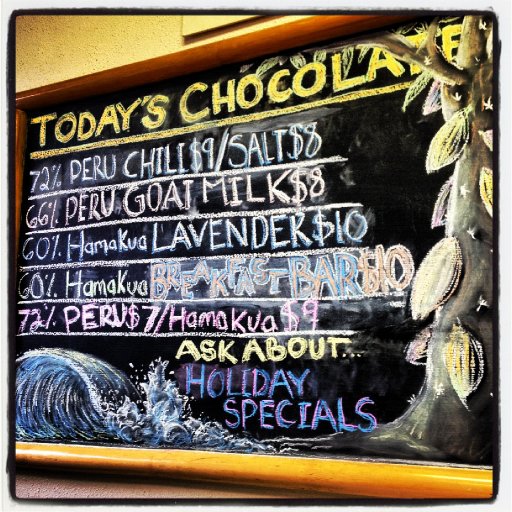 TODAY'S CHOCOLATE
72% PERU CHILI $9/SALT $8
66% PERU GOAT MILK $8
60% Hamakua LAVENDER $10
60% Hamakua BREAKFAST BAR $10
72% PERU $7/Hamakua $9
ASK ABOUT...
HOLIDAY
SPECIALS